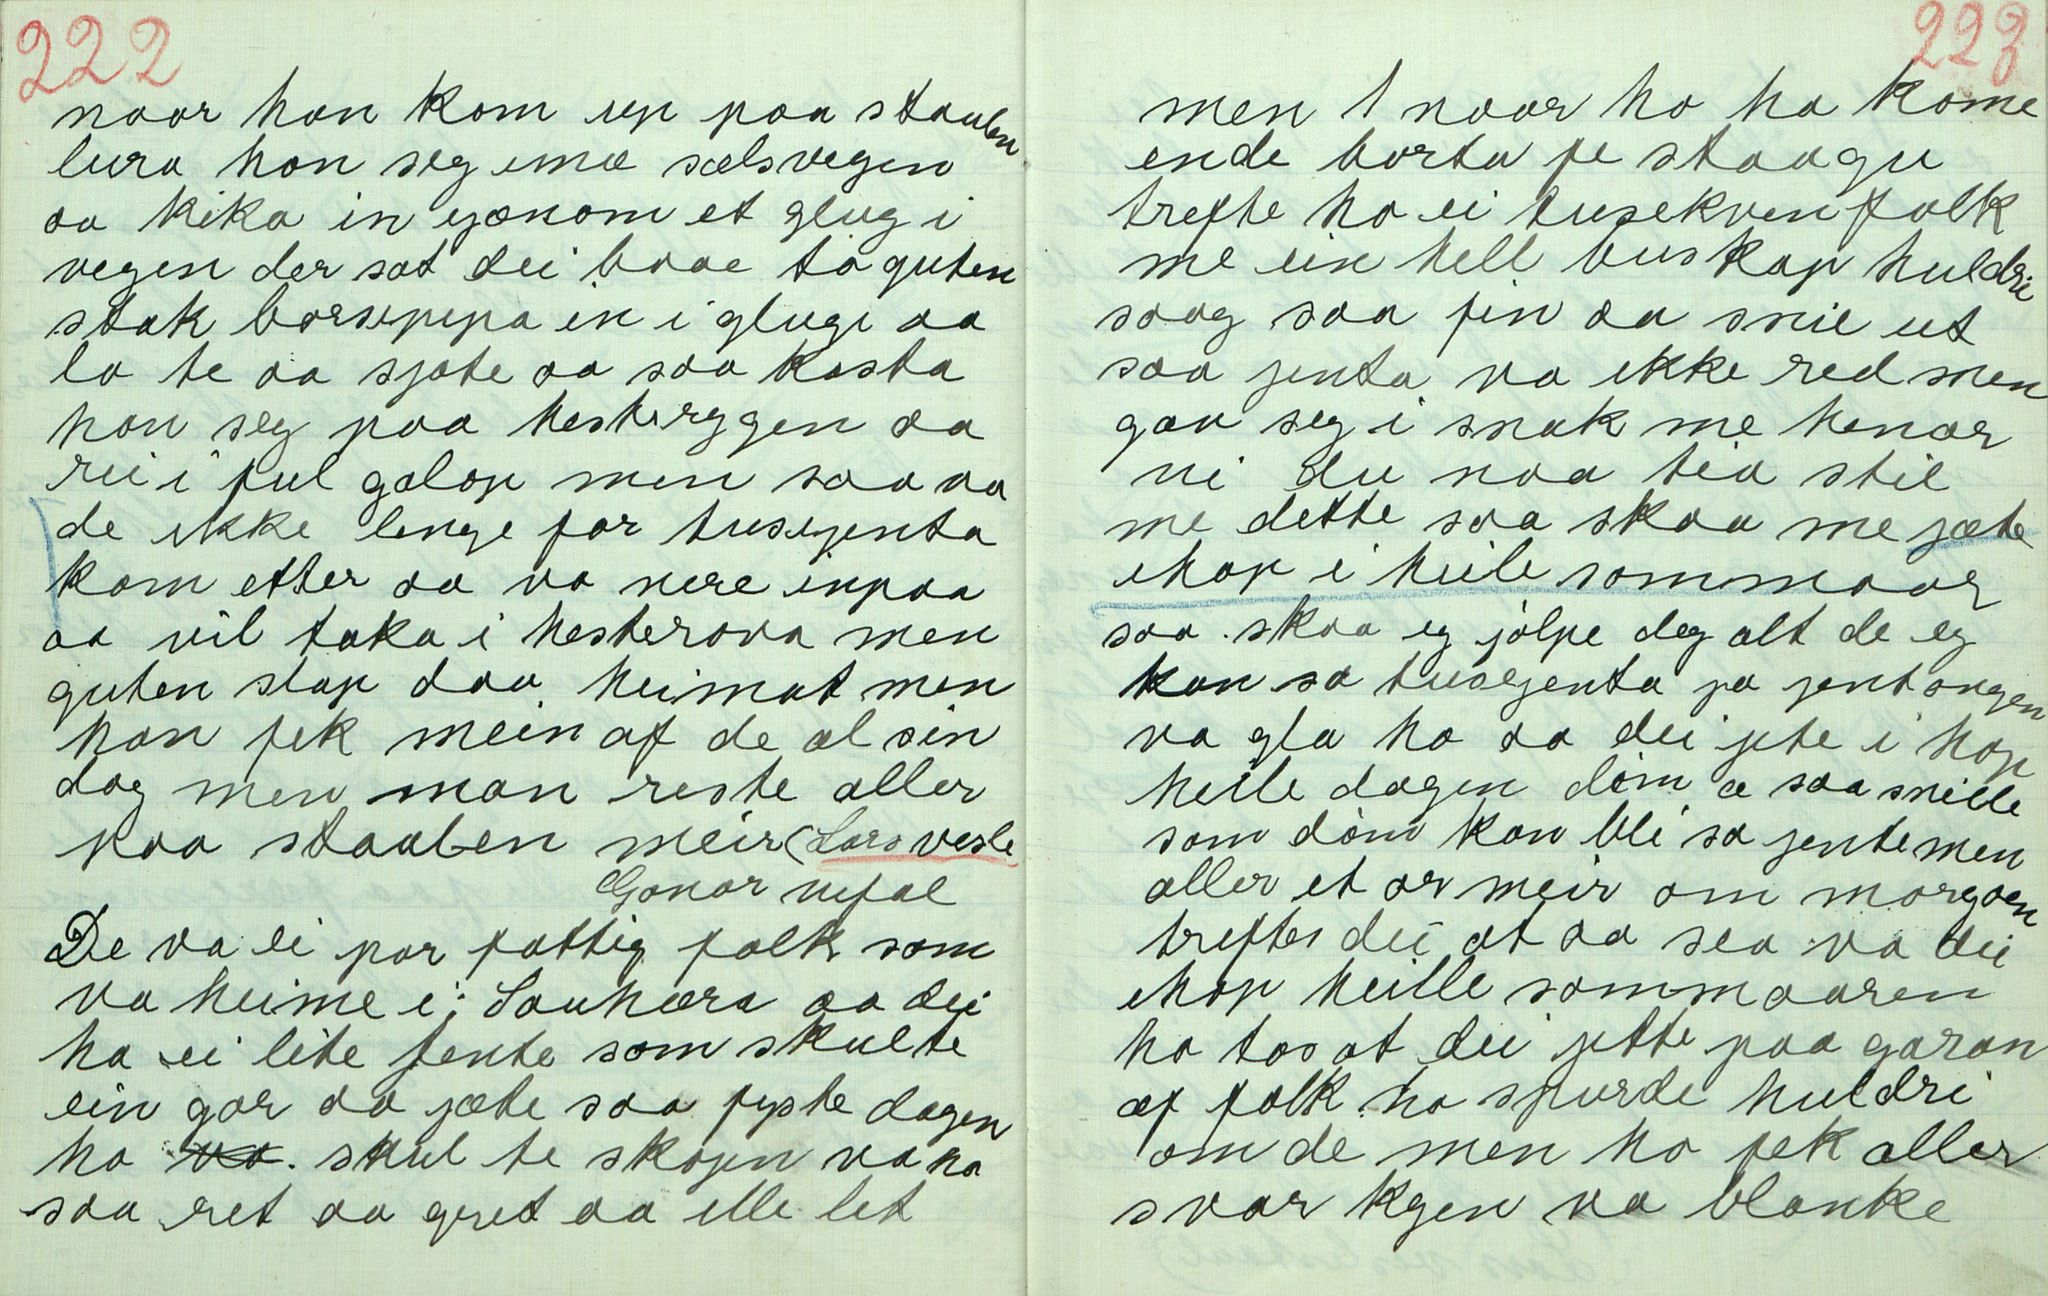 222
naar han kom up paa staulen
lura han seg imø sælsvegen
aa kika in gjænom et glug i
vegen der sat dei baae to guten
stak børsepipa in i glugi aa
lo te aa sjote aa saa kasta
han seg paa hesteryggen aa
rei i ful galop men saa va
de ikke lenge før tusejenta
kom etter aa va nere inpaa
aa vil taka i hesterova men
guten slap daa heimat men
han fek mein af de al sin
dag men man reste aller
paa staalen meir (Lars vesle
Gonar nefal
De va ei par fattig folk som
va heime i; Sauhæra aa dei
ha ei lite jente som skulte
ein gar aa jæte saa fyste dagen
ho skul te skogen va ho
saa ret aa gret aa ille let
223
men 1 naar ho ha kome
ende borta pe staagu
trefte ho ei tusekvenfolk
me ein hell buskap huldri
saag saa fin aa snil ut
saa jenta va ikke red men
gav seg i snak me henar
vi du naa tia stil
me dette saa skaa me jæte
ihop i heile sommaar
saa skaa eg jølpe deg alt de eg
kan sa tusejenta ja jentongen
va gla ho aa dei jete i hop
heile dagen døm æ saa snille
som døm kan bli sa jente men
aller et or meir om morgoen
treftes dei at aa sea va dei
ihop heille sommaaren
ho tos at dei jette paa garan
æf folk. ho spurde huldri
om de men ho fek aller
svar kyen va blanke